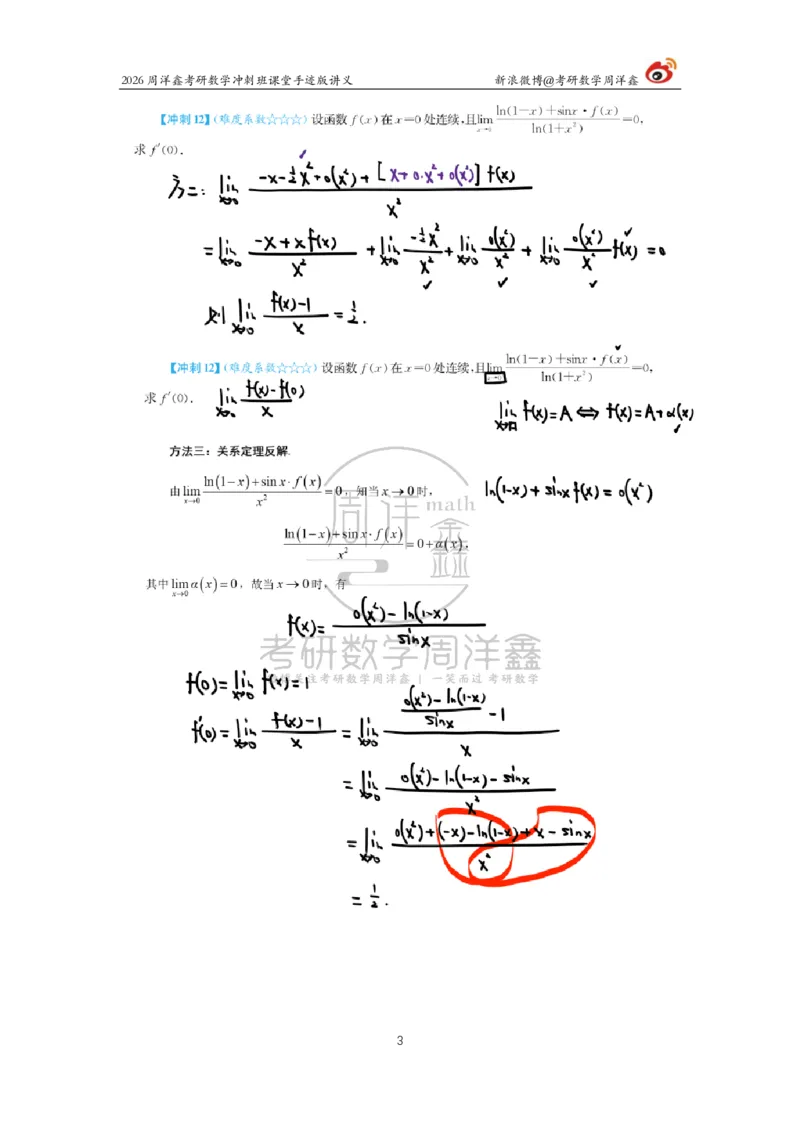 2026 周洋鑫考研数学冲刺班课堂手迹版讲义 新浪微博@考研数学周洋鑫
【冲刺12】(难度系数☆☆☆) 设函数 f(x) 在 x=0 处连续,且 lim_{x→0} (ln(1-x)+sinx·f(x))/(ln(1+x²)) =0,
求 f′(0).
方二: lim_{x→0} (-x-½x²+o(x²)+[x+0·x²+o(x²)]f(x))/x²
= lim_{x→0} (-x+xf(x))/x² + lim_{x→0} (-½x²)/x² + lim_{x→0} o(x²)/x² + lim_{x→0} o(x²)/x² f(x) = 0
则 lim_{x→0} (f(x)-1)/x = ½.
【冲刺12】(难度系数☆☆☆) 设函数 f(x) 在 x=0 处连续,且 lim_{x→0} (ln(1-x)+sinx·f(x))/(ln(1+x²)) =0,
求 f′(0). lim_{x→0} (f(x)-f(0))/x
lim_{x→□} f(x)=A ⇔ f(x)=A+α(x)
方法三:关系定理反解.
由 lim_{x→0} (ln(1-x)+sin x·f(x))/x² =0,知当 x→0 时, ln(1-x)+sinx f(x)=o(x²)
(ln(1-x)+sin x·f(x))/x² =0+α(x),
其中 lim_{x→0} α(x)=0,故当 x→0 时,有
f(x)= (o(x²)-ln(1-x))/sinx
周洋鑫 math
考研数学周洋鑫
关注考研数学周洋鑫 | 一笑而过 考研数学
f(0)= lim_{x→0} f(x)=1
f′(0)= lim_{x→0} (f(x)-1)/x = lim_{x→0} ((o(x²)-ln(1-x))/sinx -1)/x
= lim_{x→0} (o(x²)-ln(1-x)-sinx)/x²
= lim_{x→0} (o(x²)+(-x)-ln(1-x)+x-sinx)/x²
= ½.
3